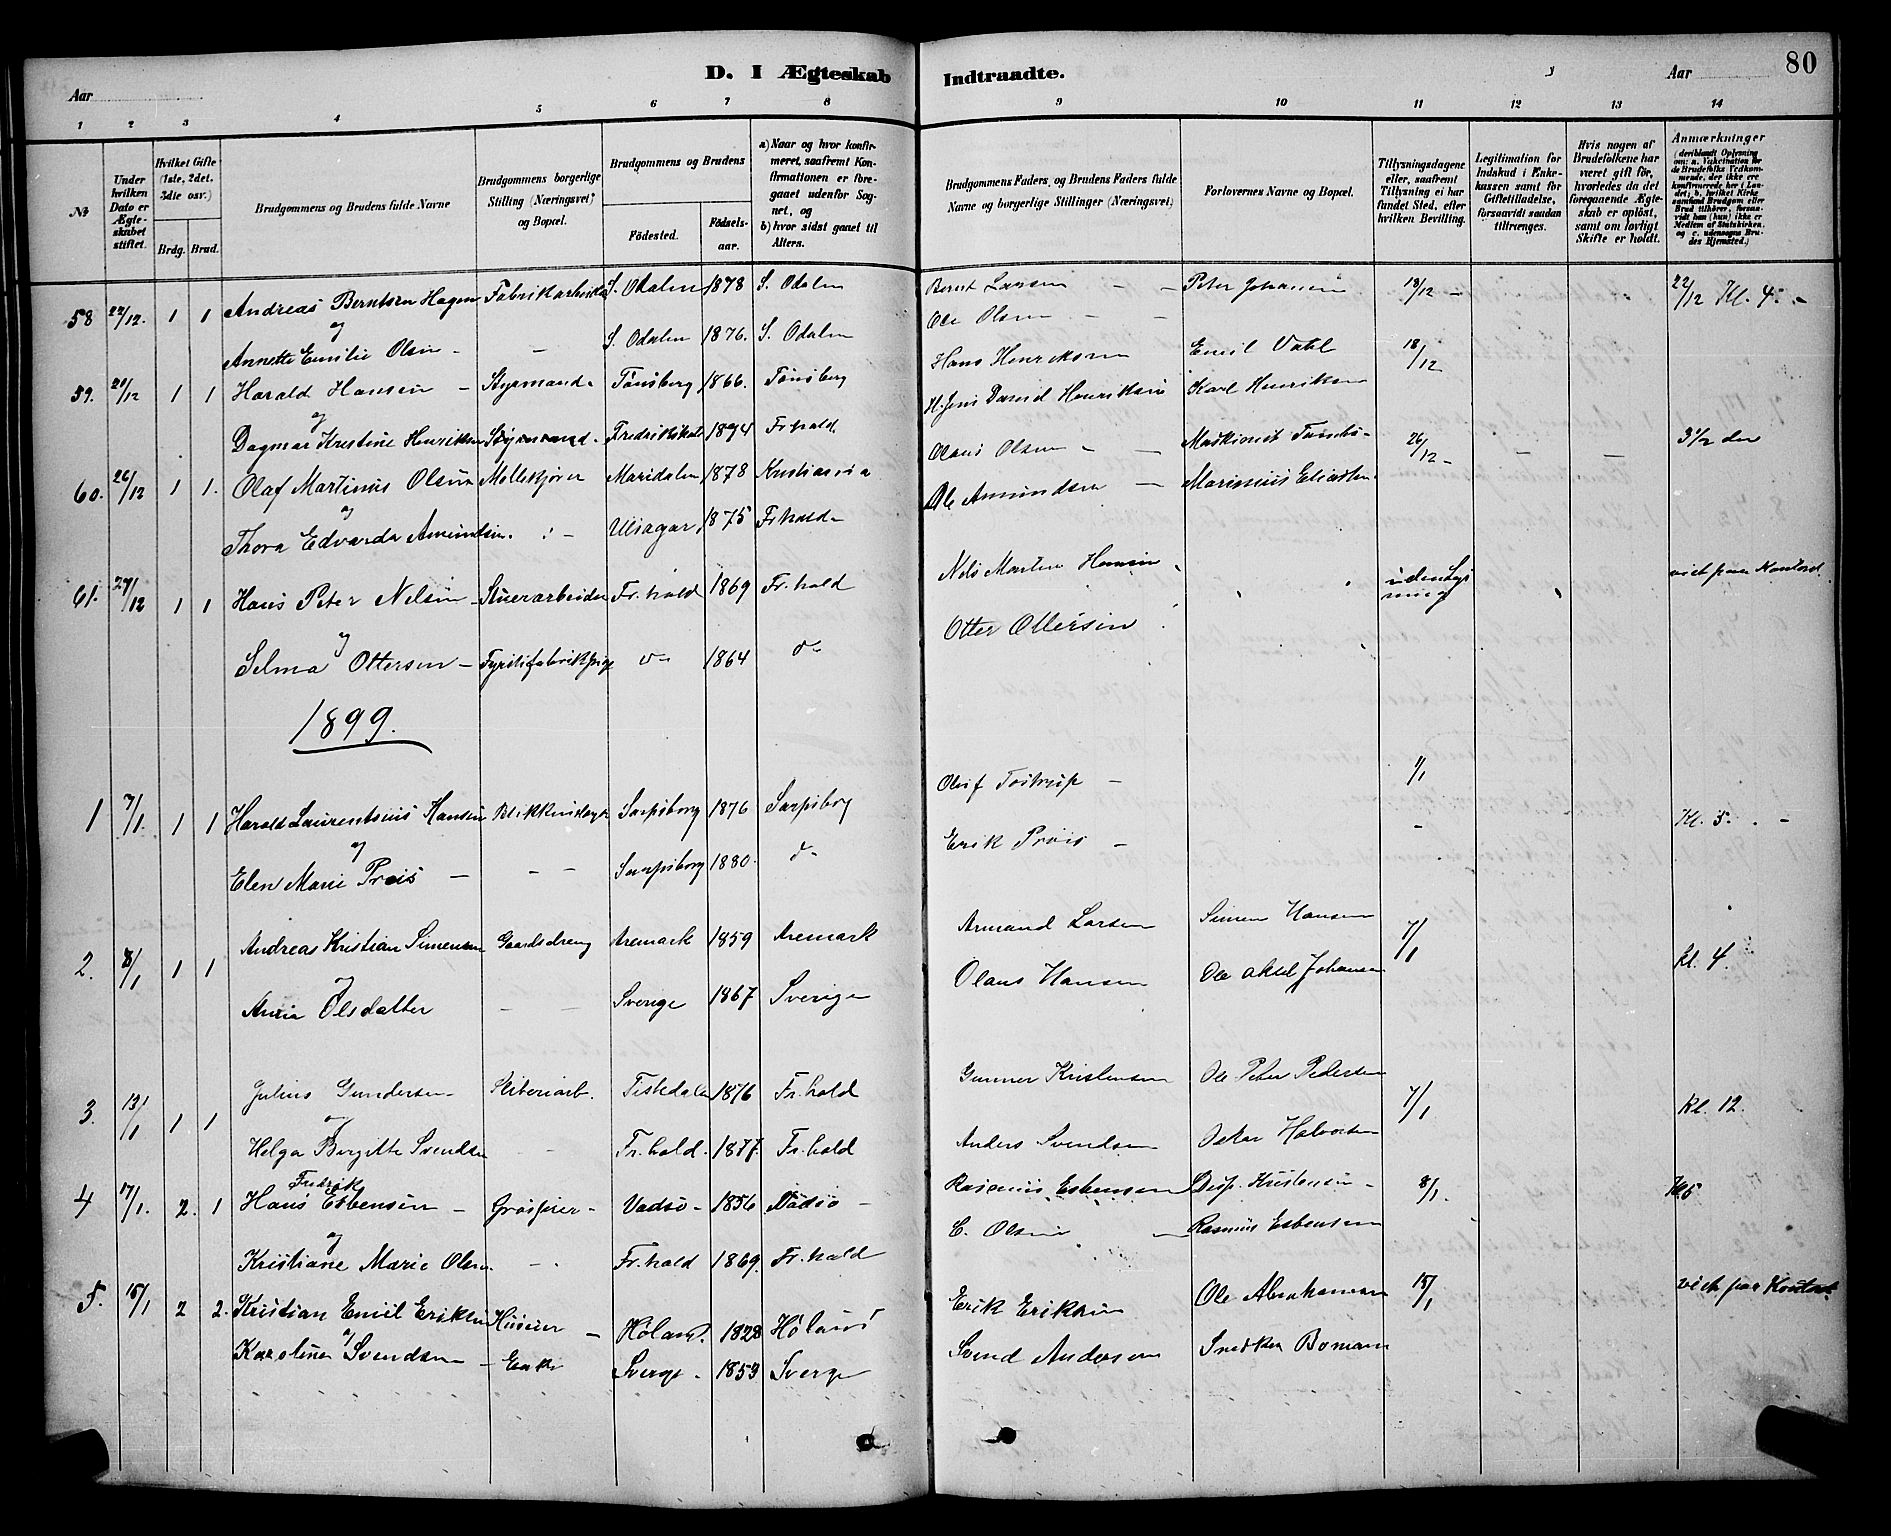 D. I Ægteskab Indtraadte.
80
Aar
Aar
1 2 3 4 5 6 7 8 9 10 11 12 13 14
№
Under hvilken Dato er Ægteskabet stiftet.
Hvilket Gifte (1ste, 2det, 3die osv.)
Brdg. Brud.
Brudgommens og Brudens fulde Navne
Brudgommens borgerlige Stilling (Næringsvei) og Bopæl.
Brudgommens og Brudens
Fødested.
Fødselsaar.
a) Naar og hvor konfirmeret, saafremt Konfirmationen er foregaaet udenfor Sognet, og
b) hvor sidst gaaet til Alters.
Brudgommens Faders, og Brudens Faders fulde Navne og borgerlige Stillinger (Næringsvei)
Forlovernes Navne og Bopæl.
Tillysningsdagene eller, saafremt Tillysning ei har fundet Sted, efter hvilken Bevilling.
Legitimation for Indskud i Enkekassen samt for Giftetilladelse, forsaavidt saadan tiltrænges.
Hvis nogen af Brudefolkene har været gift før, hvorledes da det foregaaende Ægteskab er opløst, samt om lovligt Skifte er holdt.
Anmærkninger
58 22/12. 1 1 Andreas Berntsen Hagen Fabrikarbeider S. Odalen 1878 S. Odalen Bernt Larsen - - Peter Johansen 18/12 - 22/12 Kl. 4. -
og
Annette Emilie Olsen - - S. Odalen 1876. S. Odalen Ole Olsen - -
59. 21/12 1 1 Harald Hansen - Styrmand Tønsberg 1866. Tønsberg Hans Henriksen Emil Dahl 18/12
og
Dagmar Kristine Henriksen Styrmand. Fredrikshald 1874 Fr.hald. H. Jens David Henriksen Karl Henriksen
60. 26/12 1 1. Olaf Martinus Olsen Møllekjører Maridalen 1878 Kristiania Olaus Olsen - - Maskinist 26/12 - - - 3 1/2
og
Thora Edvarda Amundsen. Ullsager 1875 Fr.hald Ole Amundsen - Marinius
61. 27/12 1 1 Hans Peter Nilsen - Stuerarbeider Fr.hald 1869 Fr.hald Nils Martin Hansen uden Lysning viet paa Kontoret
og
Selma Ottersen - d- 1864 d- Otter Ottersen
1899.
1 7/1. 1 1 Harald Laurentsius Hansen Sarpsborg 1876 Sarpsborg Oluf Tostrup - 1/1 Kl. 5. -
og
Elen Marie Prøis - - - Sarpsborg 1880. d- Erik Prøis - -
2. 8/1 1 1 Andreas Kristian Simensen Gaardsdreng Aremark 1859 Aremark Armand Larsen Simen Hansen 7/1 kl. 4.
og
Anna Olsdatter - - Sverige 1867 Sverige Olaus Hansen Ole Aksel Johansen
3. 13/1 1 1 Julius Gundersen Tistedalen 1876 Fr.hald Gunner Kristensen Ole Peter Pedersen 7/1 kl. 12.
og
Helga Birgitte Svendsen Fr.hald. 1877. Fr.hald Anders Svendsen Oskar Halvorsen
Fredrik
4 17/1. 2. 1 Hans Esbensen - Grosserer - Vadsø - 1856 Vadsø - Rasmus Esbensen Disp. Kristensen - 8/1. Kl. 5
og
Kristiane Marie Olsen. - - Fr.hald 1869. Fr.hald C. Olsen - Rasmus Esbensen
5. 15/1 2 2. Kristian Emil Eriksen Huseier - Høland. 1828 Høland Erik Eriksen Ole Abrahamsen 15/1 viet paa Kontoret.
og
Karoline Svendsen - Enke Sverge. 1853 Sverge Svend Andersen Snedker Boman